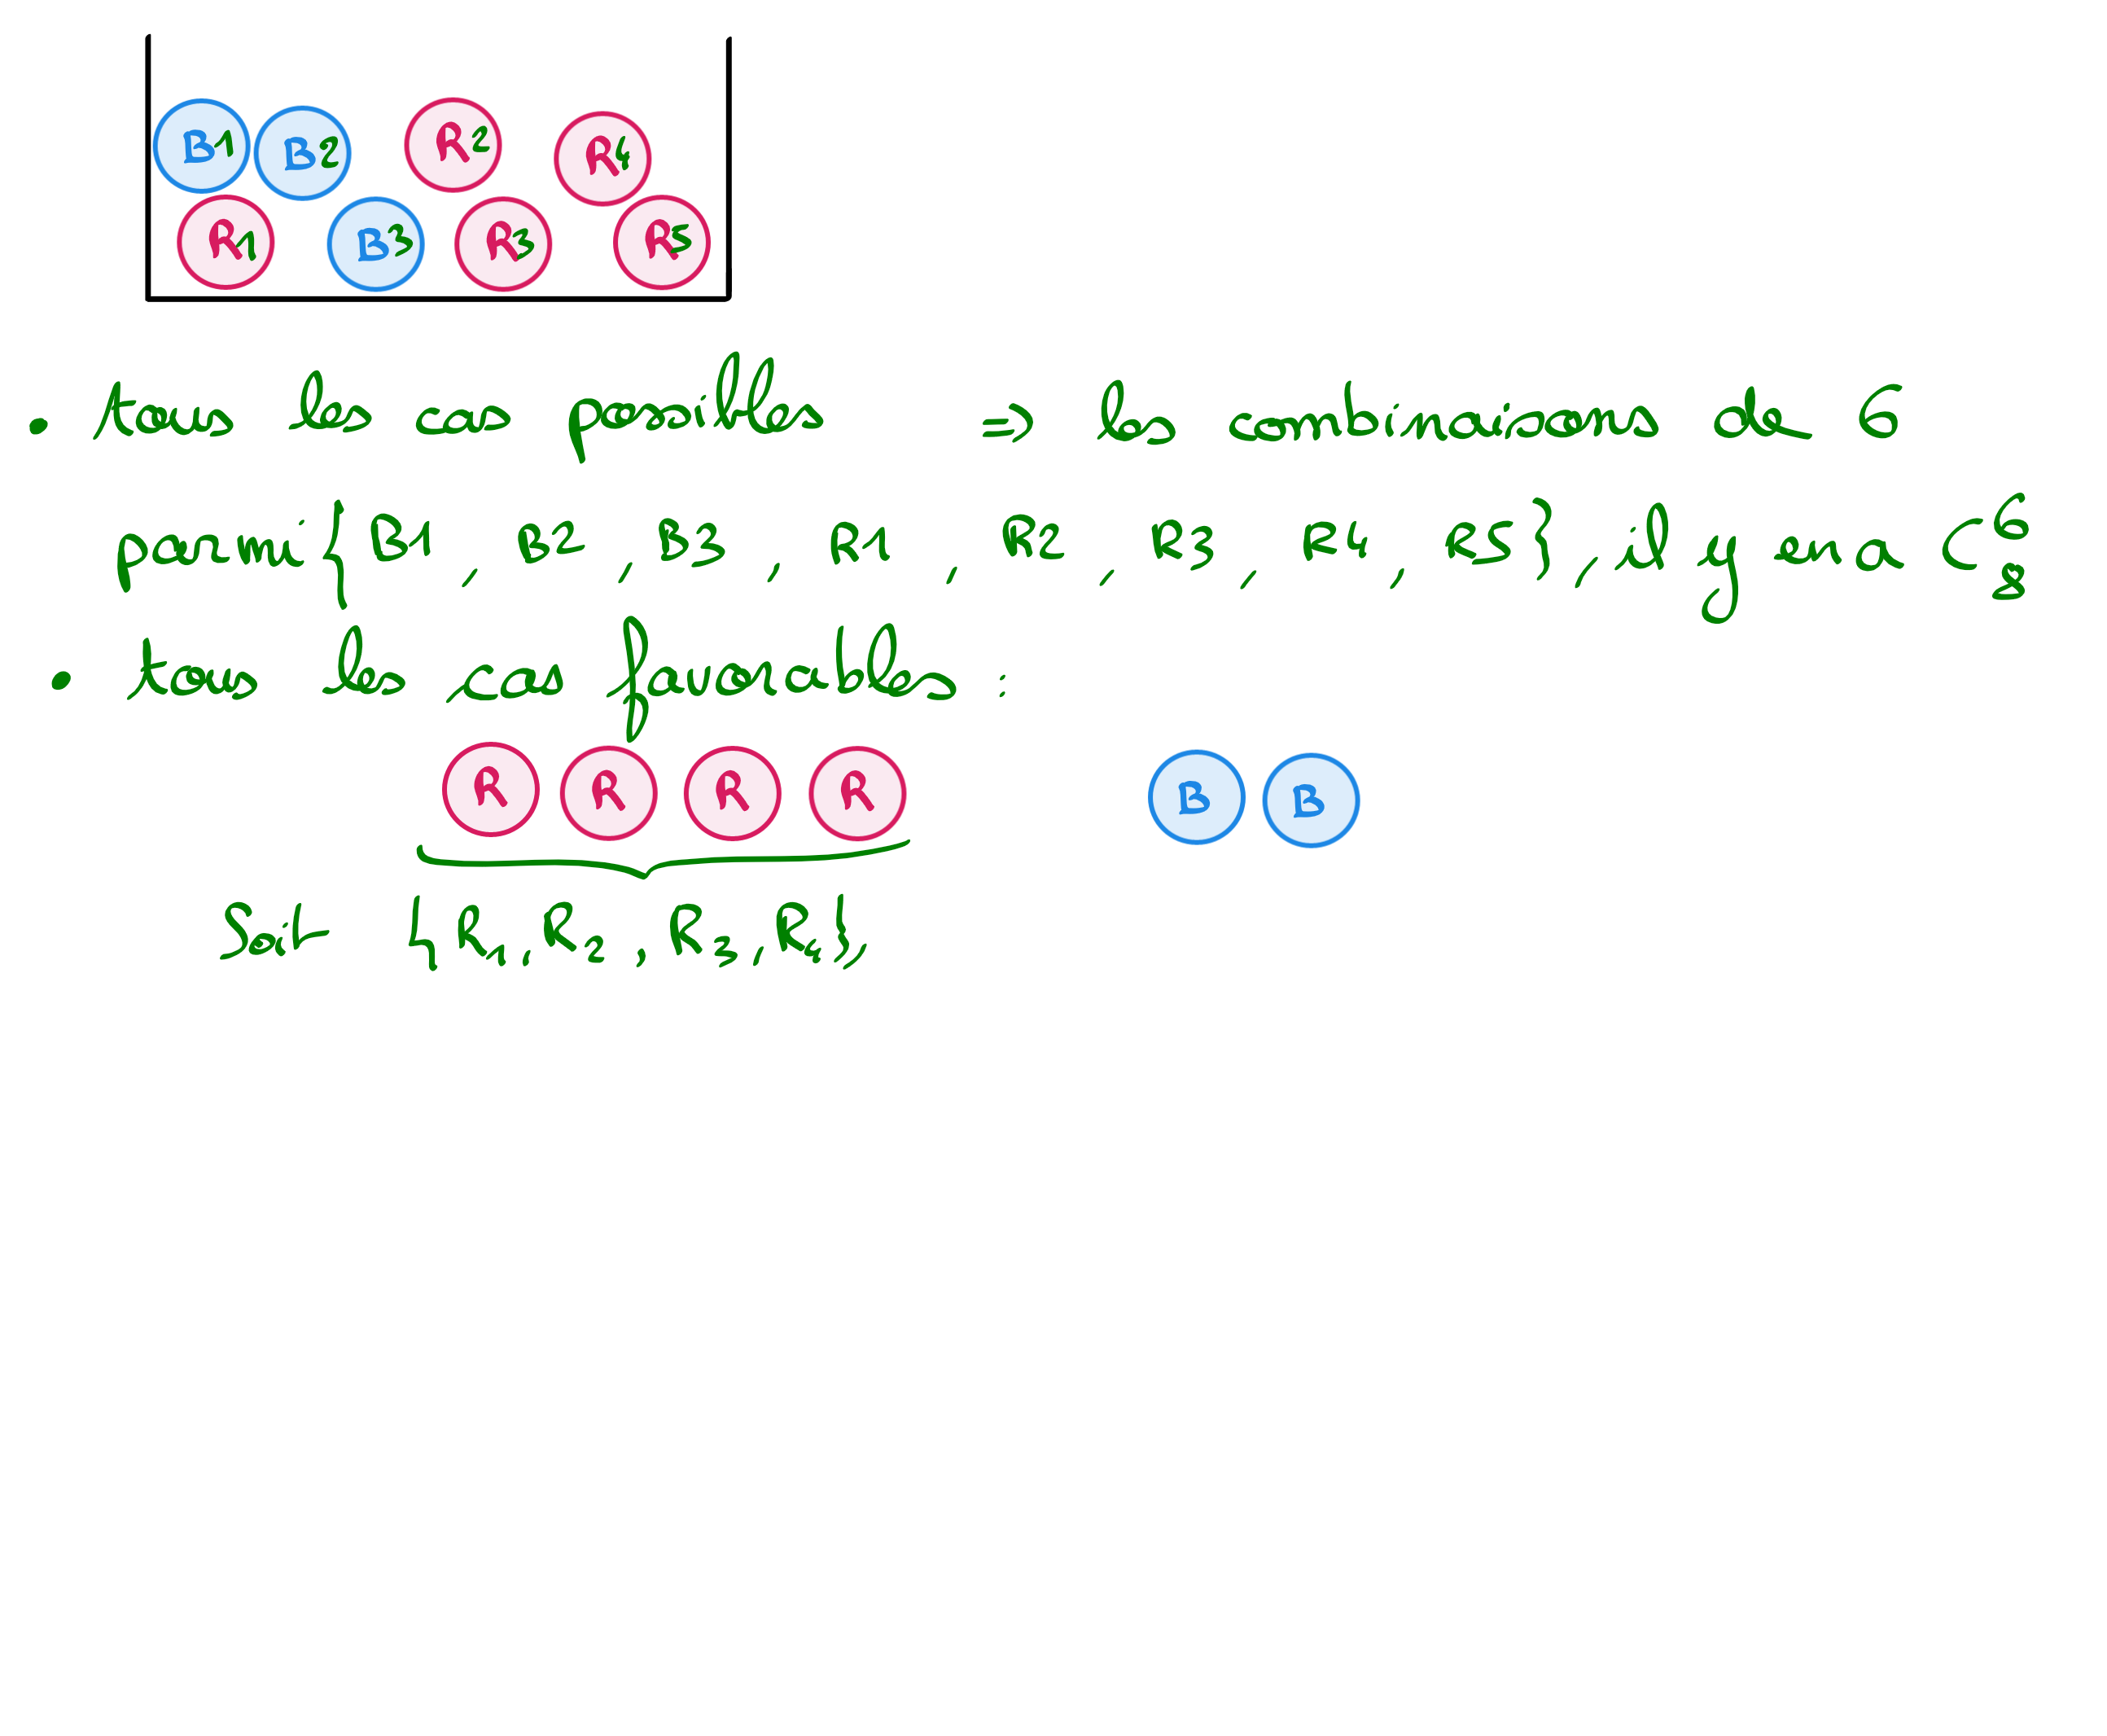 B1 B2 R2 R4
R1 B3 R3 R5
• tous les cas possibles => les combinaisons de 6
parmi {B1, B2, B3, R1, R2, R3, R4, R5}, il y en a C⁶₈
• tous les cas favorables :
R R R R B B
Soit {R₁, R₂, R₃, R₄},